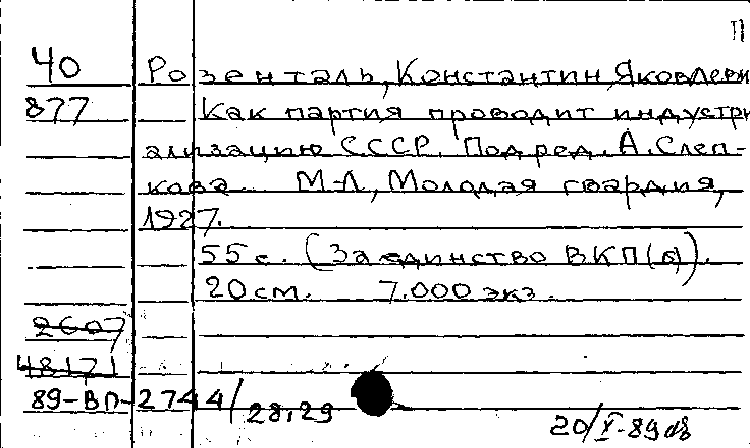 II
40 Розенталь, Константин Яковлеви
877 Как партия проводит индустри
ализацию СССР. Под ред. А. Слеп-
кова. М-Л, Молодая гвардия,
1927.
55 с. (За единство ВКП(б)).
20 см. 7.000 экз.
2607
48171
89-ВП-2744/28,29
20/X-89